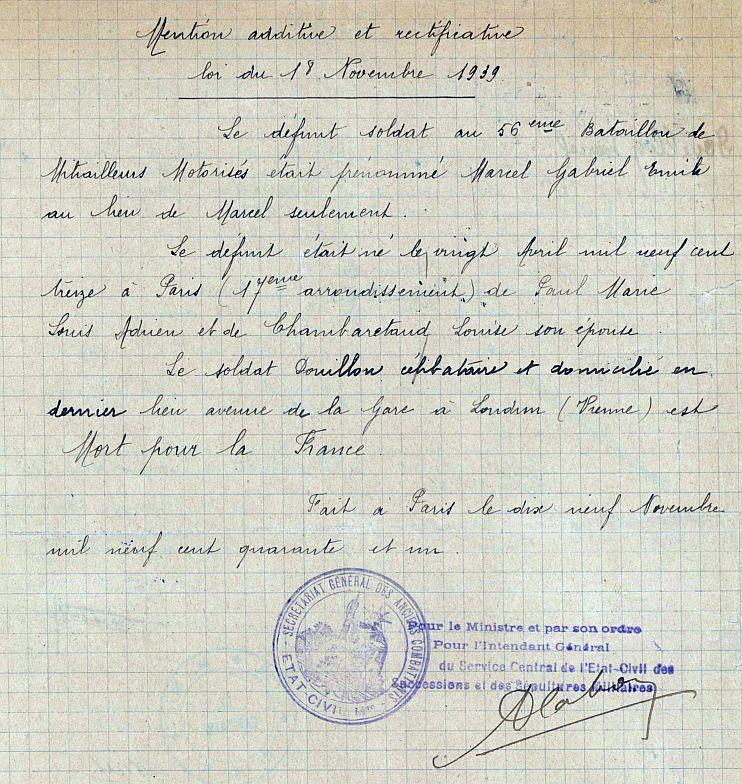 Mention additive et rectificative
loi du 18 Novembre 1939
Le défunt soldat au 56eme Bataillon de
Mitrailleurs Motorisés était prénommé Marcel Gabriel Emile
au lieu de Marcel seulement.
Le défunt était né le vingt Avril mil neuf cent
treize à Paris (17eme arrondissement) de Paul Marie
Louis Adrien et de Chambaretaud Louise son épouse.
Le soldat Douillon célibataire et domicilié en
dernier lieu avenue de la Gare à Loudun (Vienne) est
Mort pour la France.
Fait à Paris le dix neuf Novembre
mil neuf cent quarante et un.
SECRÉTARIAT GÉNÉRAL DES ANCIENS COMBATTANTS
ETAT-CIVIL
Pour le Ministre et par son ordre
Pour l'Intendant Général
du Service Central de l'Etat-Civil des
Successions et des Sépultures Militaires